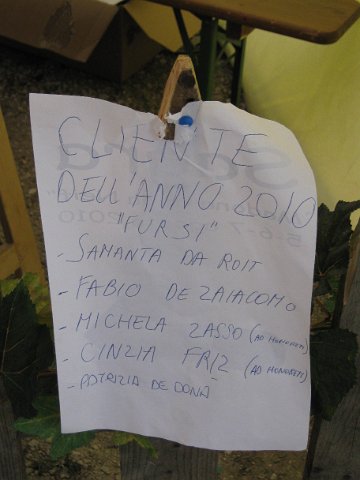 CLIENTE
DELL'ANNO 2010
"FURSI"
- SAMANTA DA ROIT
- FABIO DE ZAIACOMO
- MICHELA ZASSO (AD HONOREM)
- CINZIA FRIZ (AD HONOREM)
- PATRIZIA DE DONÀ
5-6-7
2010